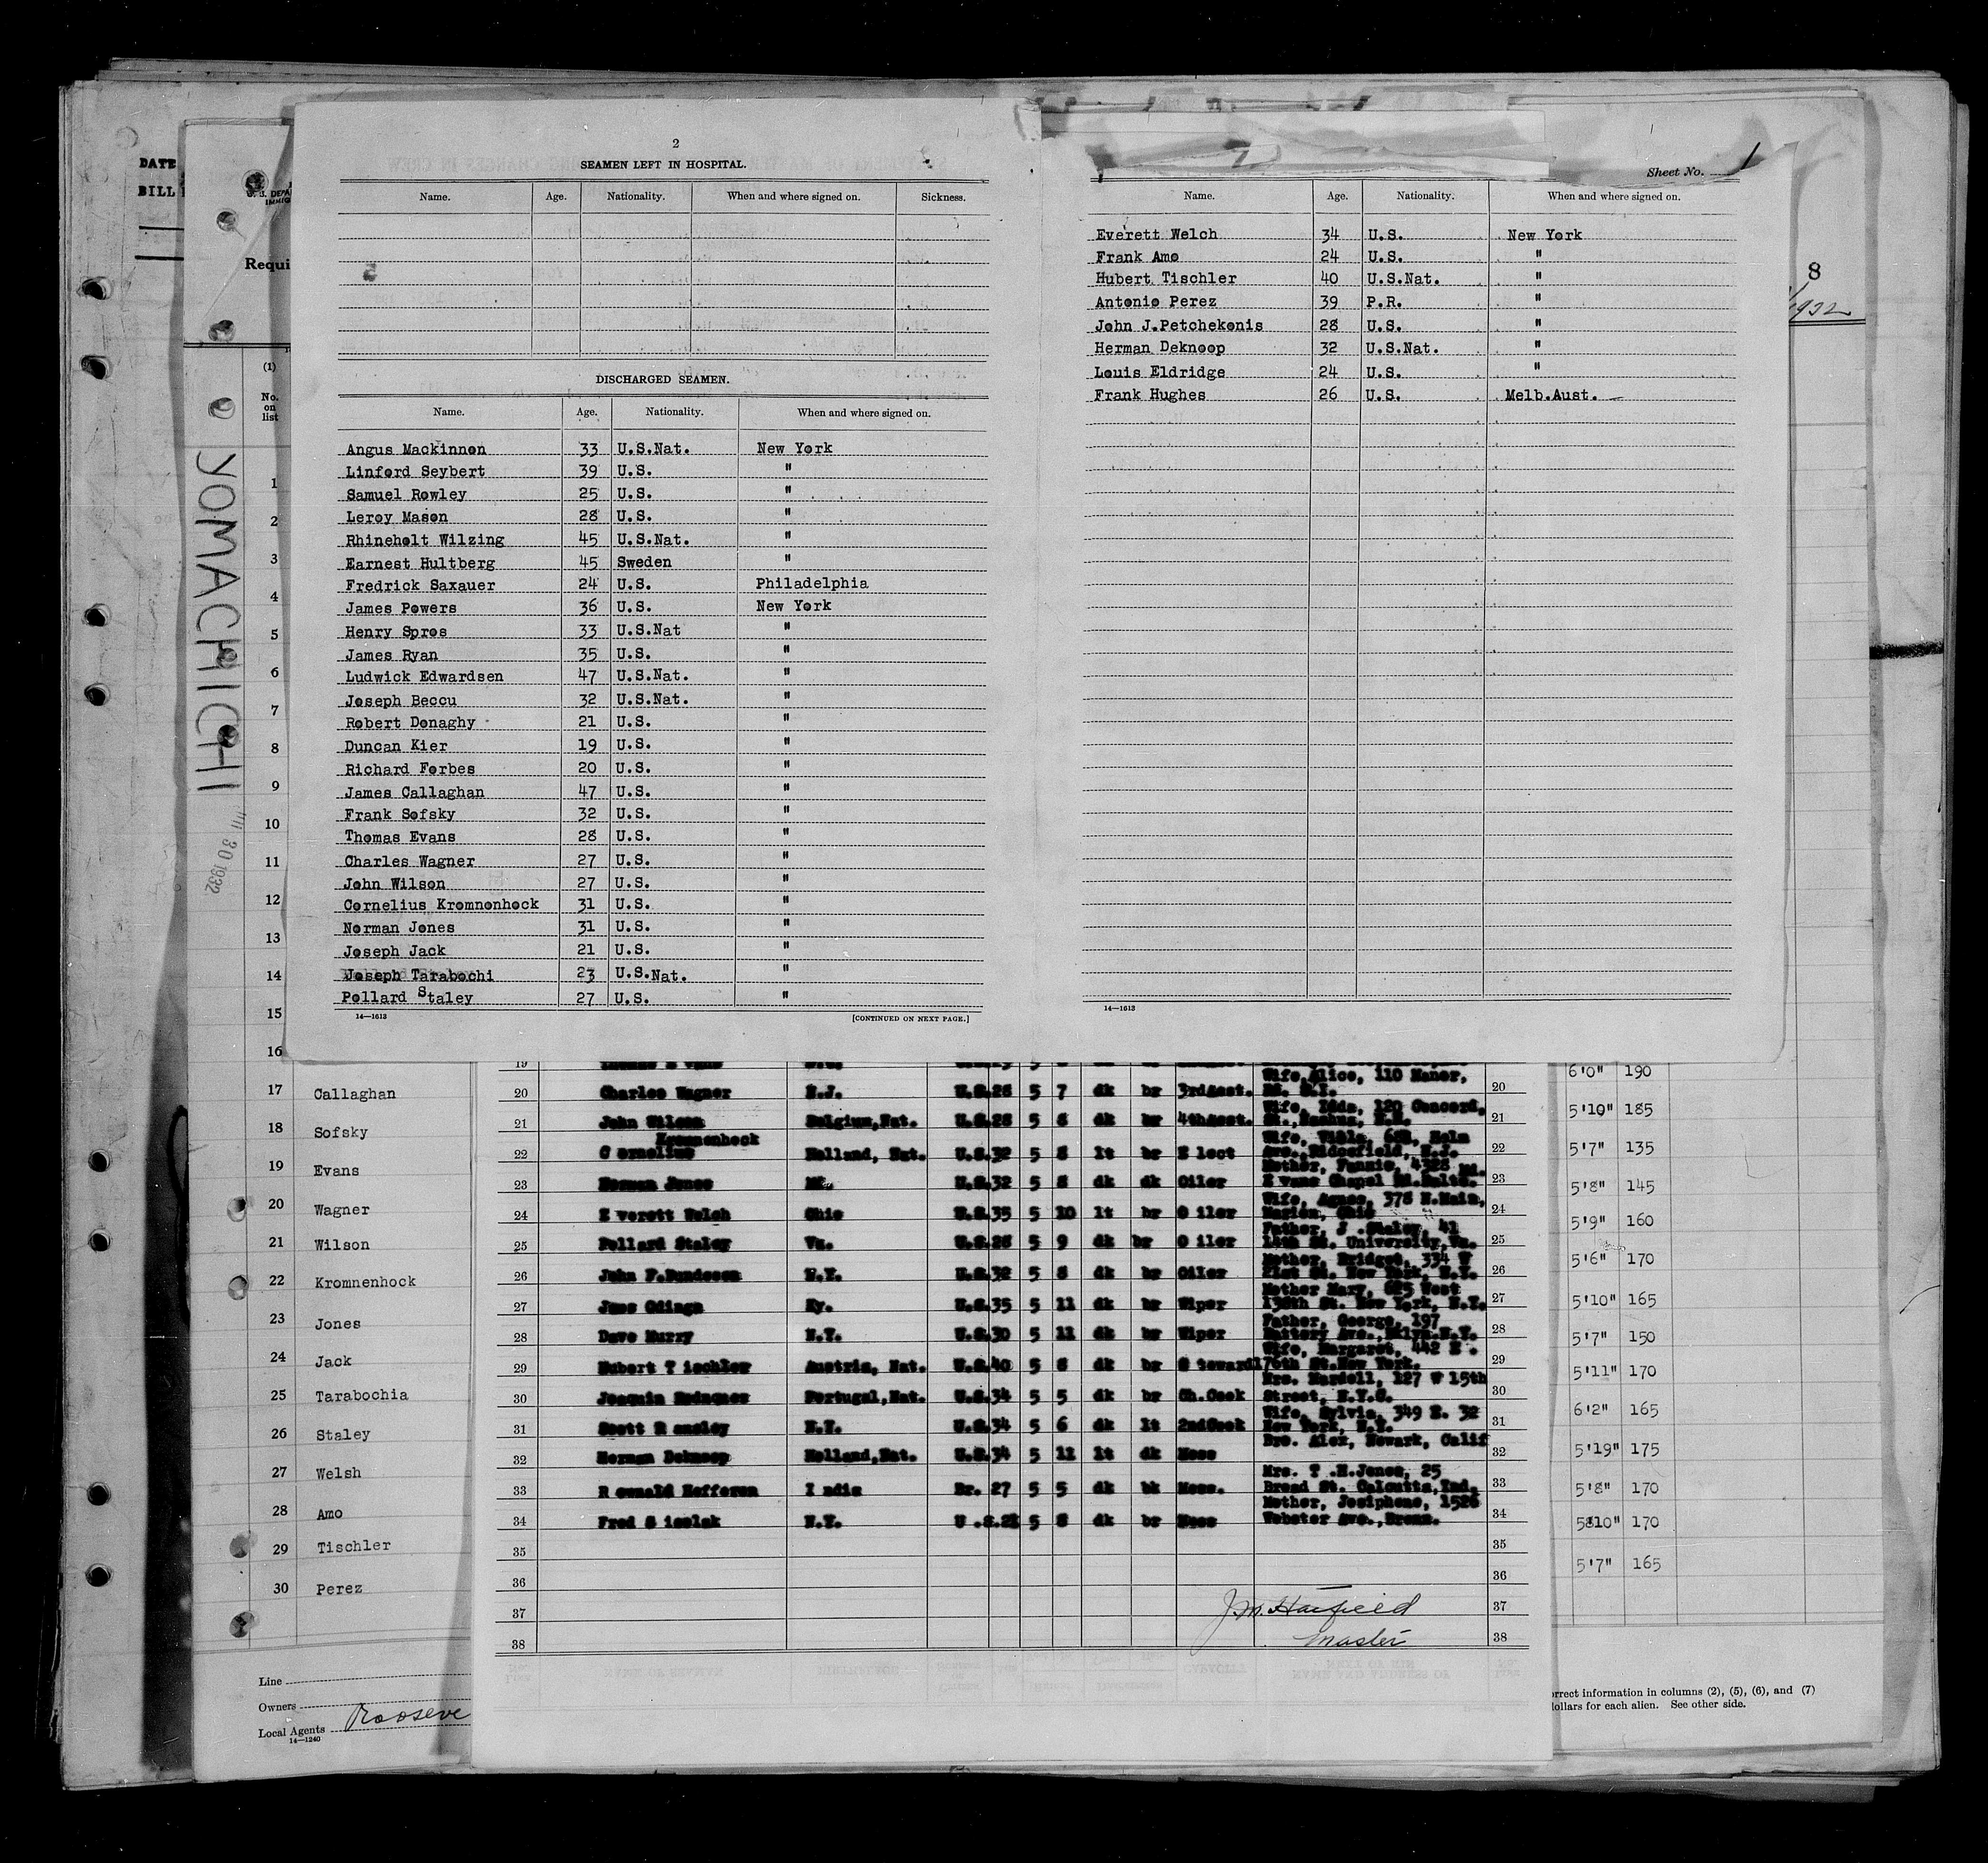 DATE
BILL
Requi
2
SEAMEN LEFT IN HOSPITAL.
Name. Age. Nationality. When and where signed on. Sickness.
DISCHARGED SEAMEN.
Name. Age. Nationality. When and where signed on.
Angus Mackinnon 33 U.S.Nat. New York
Linford Seybert 39 U.S. "
Samuel Rowley 25 U.S. "
Leroy Mason 28 U.S. "
Rhineholt Wilzing 45 U.S.Nat. "
Earnest Hultberg 45 Sweden "
Fredrick Saxauer 24 U.S. Philadelphia
James Powers 36 U.S. New York
Henry Spros 33 U.S.Nat "
James Ryan 35 U.S. "
Ludwick Edwardsen 47 U.S.Nat. "
Joseph Beccu 32 U.S.Nat. "
Robert Donaghy 21 U.S. "
Duncan Kier 19 U.S. "
Richard Forbes 20 U.S. "
James Callaghan 47 U.S. "
Frank Sofsky 32 U.S. "
Thomas Evans 28 U.S. "
Charles Wagner 27 U.S. "
John Wilson 27 U.S. "
Cornelius Kromnonhock 31 U.S. "
Norman Jones 31 U.S. "
Joseph Jack 21 U.S. "
Joseph Tarabochi 23 U.S.Nat. "
Pollard Staley 27 U.S. "
14—1613 [CONTINUED ON NEXT PAGE.]
Sheet No. 1
Name. Age. Nationality. When and where signed on.
Everett Welch 34 U.S. New York
Frank Amo 24 U.S. "
Hubert Tischler 40 U.S.Nat. "
Antonio Perez 39 P.R. "
John J.Petchekonis 28 U.S. "
Herman Deknoop 32 U.S.Nat. "
Louis Eldridge 24 U.S. "
Frank Hughes 26 U.S. Melb.Aust.
14—1613
8
1932
(1)
No. on list
YOMACHICHI
30 1932
1
2
3
4
5
6
7
8
9
10
11
12
13
14
15
16
17 Callaghan
18 Sofsky
19 Evans
20 Wagner
21 Wilson
22 Kromnenhock
23 Jones
24 Jack
25 Tarabochia
26 Staley
27 Welsh
28 Amo
29 Tischler
30 Perez
Line
Owners
Local Agents Rooseve
14—1240
19
20 Charles Wagner N.J. U.S.26 5 7 dk br 3rdAsst. Wife,Alice, 110 Manor, 20
21 John Wilson Belgium,Nat. U.S.28 5 8 dk br 4thAsst. Wife, 120 Concord, 21
22 Cornelius Kromnenhock Holland, Nat. U.S.32 5 8 lt br Elect Wife, Ave.,Ridgefield, N.J. 22
23 Norman Jones U.S.32 5 8 dk dk Oiler Mother, Fannie, 4328 Evans Chapel Rd. 23
24 Everett Welch Ohio U.S.35 5 10 lt br Oiler Wife, Agnes, 378 N.Main, Marion, Ohio 24
25 Pollard Staley Va. U.S.28 5 9 dk br Oiler Father, J.Staley, 41 14th St. University,Va. 25
26 U.S.32 5 8 dk br Oiler Mother, Bridget, 334 W 21st St. New York, N.Y. 26
27 Ky. U.S.35 5 11 dk br Wiper Mother Mary, 625 West 138th St. New York, N.Y. 27
28 Dave Murry N.Y. U.S.30 5 11 dk br Wiper Father, George, 197 Battery Ave.,Bklyn.N.Y. 28
29 Hubert Tischler Austria, Nat. U.S.40 5 8 dk br Steward Wife, Margaret, 442 E. 176th St.New York. 29
30 Portugal,Nat. U.S.34 5 5 dk br Ch.Cook Mrs. Mardell, 127 W 15th Street, N.Y.C. 30
31 Scott N.Y. U.S.34 5 6 dk lt 2ndCook Wife, Sylvia, 349 E. 32 New York, N.Y. 31
32 Herman Deknoop Holland,Nat. U.S.34 5 11 lt dk Mess Bro. Alex, Newark, Calif 32
33 India Br. 27 5 5 dk bk Mess. Mrs. T.H.Jones, 25 Broad St. Calcutta,Ind. 33
34 Fred N.Y. 5 8 dk br Mess Mother, Josiphene, 1526 Webster Ave.,Bronx. 34
35 35
36 36
37 J.M. Hatfield 37
38 Master 38
6'0" 190
5'10" 185
5'7" 135
5'8" 145
5'9" 160
5'6" 170
5'10" 165
5'7" 150
5'11" 170
6'2" 165
5'19" 175
5'8" 170
5810" 170
5'7" 165
orrect information in columns (2), (5), (6), and (7)
dollars for each alien. See other side.